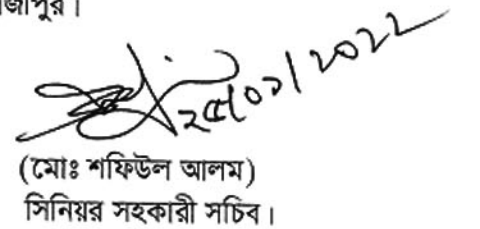 ২৫/০১/২০২২
(মোঃ শফিউল আলম)
সিনিয়র সহকারী সচিব।